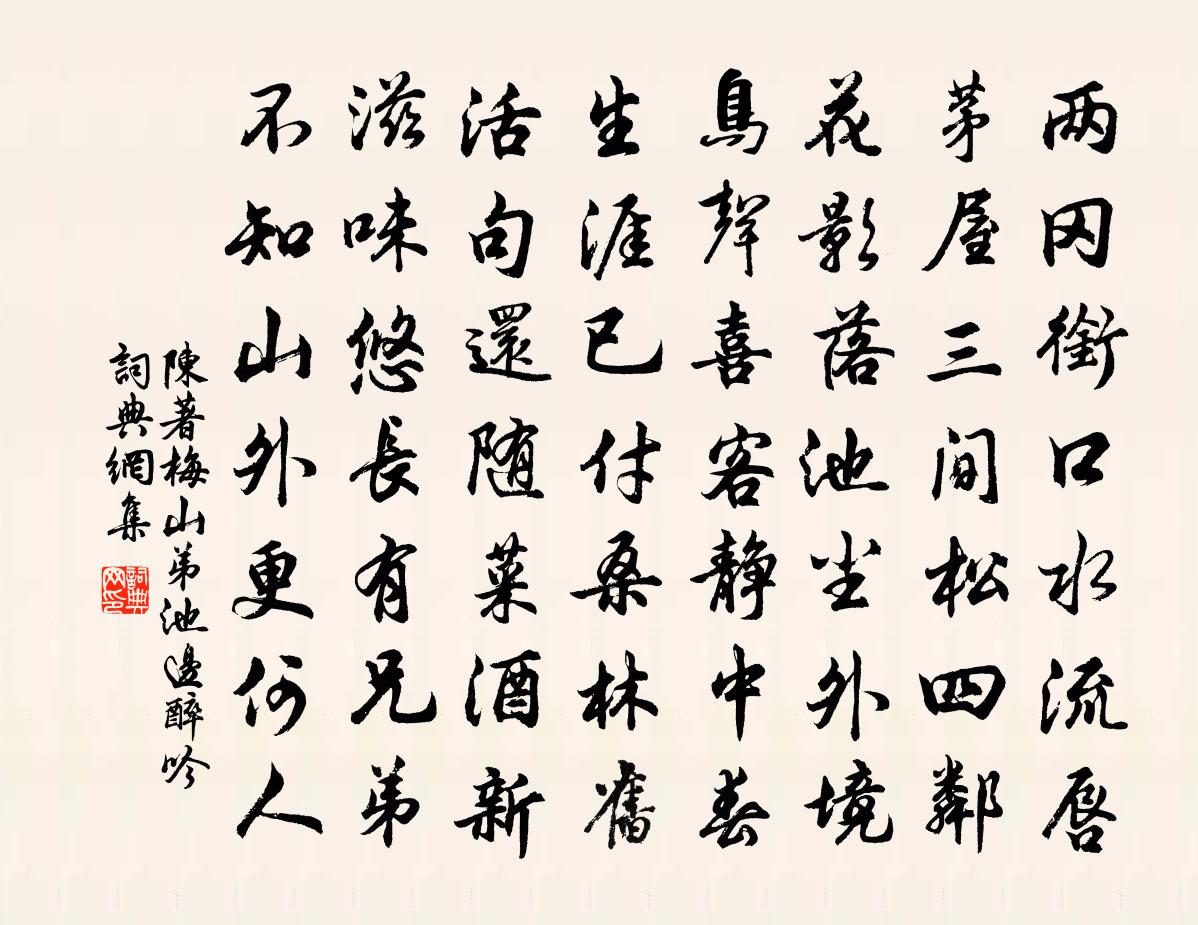 两冈衔口水流唇
茅屋三间松四鄰
花影落池尘外境
鳥聲喜客静中春
生涯已付桑林舊
活句還随菜酒新
滋味悠長有兄弟
不知山外更何人
陳著梅山弟池邊醉吟
詞典網集
詞典网印